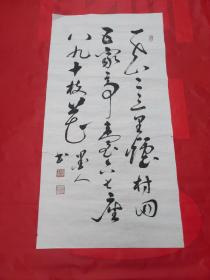 一去二三里煙村四
五家亭臺六七座
八九十枝花
书